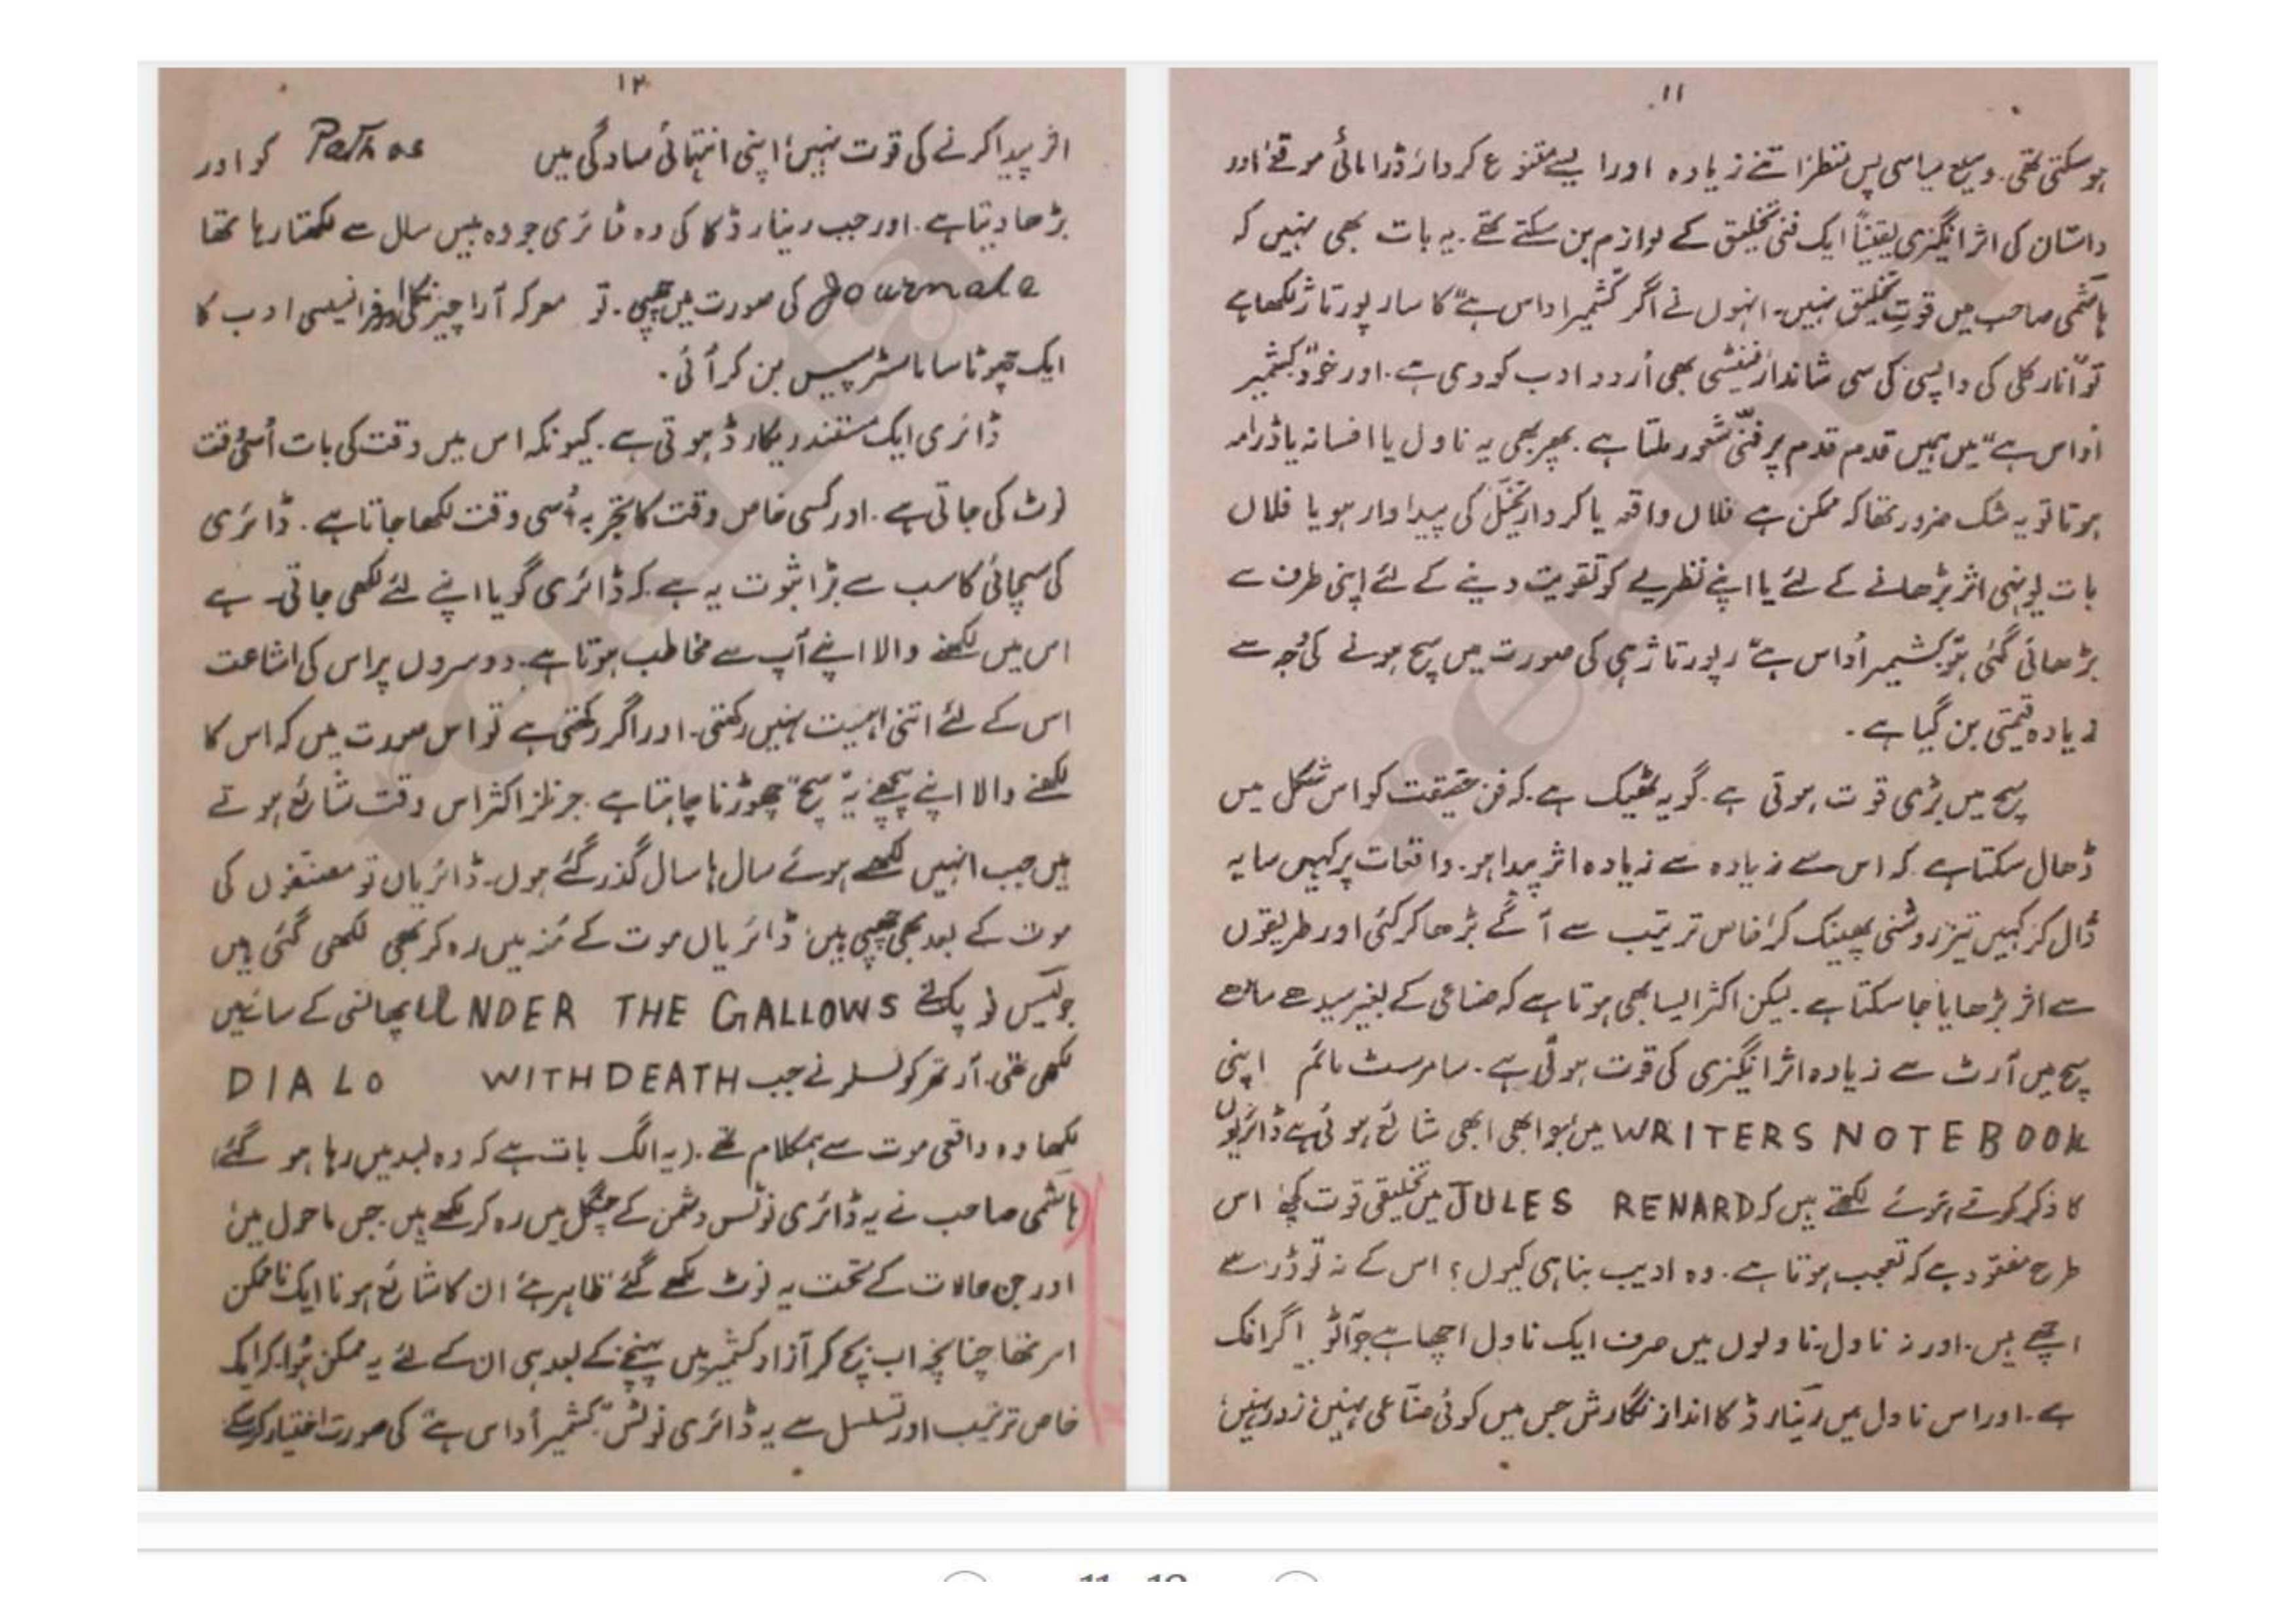 ۱۱
ہو سکتی تھی۔ وسیع سیاسی پس منظر اتنے زیادہ اور ایسے متنوع کردار ڈرامائی موقعے اور
داستان کی اثر انگیزی یقیناً ایک فنی تخلیق کے لوازم بن سکتے تھے۔ یہ بات بھی نہیں کہ
ہاشمی صاحب میں قوتِ تخلیق نہیں۔ انہوں نے اگر "کشمیر اداس ہے" کا سا رپورتاژ لکھا ہے
تو "انار کلی کی واپسی" کی سی شاندار فنٹیسی بھی اُردو ادب کو دی ہے۔ اور خود "کشمیر
اُداس ہے" میں ہمیں قدم قدم پر فنّی شعور ملتا ہے۔ پھر بھی یہ ناول یا افسانہ یا ڈرامہ
ہوتا تو یہ شک ضرور تھا کہ ممکن ہے فلاں واقعہ یا کردار تخیّل کی پیداوار ہو یا فلاں
بات یونہی اثر بڑھانے کے لئے یا اپنے نظریے کو تقویت دینے کے لئے اپنی طرف سے
بڑھائی گئی ہو "کشمیر اُداس ہے" رپورتاژ ہی کی صورت میں سچ ہونے کی وجہ سے
زیادہ قیمتی بن گیا ہے۔
سچ میں بڑی قوت ہوتی ہے۔ گو یہ ٹھیک ہے۔ کہ فن حقیقت کو اس شکل میں
ڈھال سکتا ہے کہ اس سے زیادہ سے زیادہ اثر پیدا ہو۔ واقعات پر کہیں سایہ
ڈال کر کہیں تیز روشنی پھینک کر خاص ترتیب سے آگے بڑھا کر کئی اور طریقوں
سے اثر بڑھایا جا سکتا ہے۔ لیکن اکثر ایسا بھی ہوتا ہے کہ صناعی کے بغیر سیدھے سادھے
سچ میں آرٹ سے زیادہ اثر انگیزی کی قوت ہوتی ہے۔ سامرسٹ مائم اپنی
WRITERS NOTEBOOK میں جو ابھی ابھی شائع ہوئی ہے ڈائریوں
کا ذکر کرتے ہوئے لکھتے ہیں کہ JULES RENARD میں تخلیقی قوت کچھ اس
طرح مفقود ہے کہ تعجب ہوتا ہے۔ وہ ادیب بنا ہی کیوں؟ اس کے نہ تو ڈرامے
اچھے ہیں۔ اور نہ ناول۔ ناولوں میں صرف ایک ناول اچھا ہے جو آٹو بیاگرافک
ہے۔ اور اس ناول میں رینارڈ کا انداز نگارش جس میں کوئی صنّاعی نہیں، زور نہیں،
۱۲
اثر پیدا کرنے کی قوت نہیں، اپنی انتہائی سادگی میں Pathos کو اور
بڑھا دیتا ہے۔ اور جب رینارڈ کا کی وہ ڈائری جو وہ بیس سال سے لکھتا رہا تھا
Journale کی صورت میں چھپی۔ تو معرکہ آرا چیز نکلی اور فرانسیسی ادب کا
ایک چھوٹا سا ماسٹر پیس بن کر آئی۔
ڈائری ایک مستند ریکارڈ ہوتی ہے۔ کیونکہ اس میں وقت کی بات اُسی وقت
نوٹ کی جاتی ہے۔ اور کسی خاص وقت کا تجربہ اُسی وقت لکھا جاتا ہے۔ ڈائری
کی سچائی کا سب سے بڑا ثبوت یہ ہے۔ کہ ڈائری گویا اپنے لئے لکھی جاتی ہے
اس میں لکھنے والا اپنے آپ سے مخاطب ہوتا ہے۔ دوسروں پر اس کی اشاعت
اس کے لئے اتنی اہمیت نہیں رکھتی۔ اور اگر رکھتی ہے تو اس صورت میں کہ اس کا
لکھنے والا اپنے پیچھے یہ "سچ" چھوڑنا چاہتا ہے۔ جرنلز اکثر اس وقت شائع ہوتے
ہیں جب انہیں لکھے ہوئے سال ہا سال گذر گئے ہوں۔ ڈائریاں تو مصنّفوں کی
موت کے بعد بھی چھپی ہیں، ڈائریاں موت کے مُنہ میں رہ کر بھی لکھی گئی ہیں
جولیس فوچک نے UNDER THE GALLOWS پھانسی کے سائے میں
لکھی تھی۔ آرتھر کوئسلر نے جب DIALO WITH DEATH
لکھا وہ واقعی موت سے ہمکلام تھے۔ (یہ الگ بات ہے کہ وہ بعد میں رہا ہو گئے)
ہاشمی صاحب نے یہ ڈائری نوٹس دشمن کے چنگل میں رہ کر لکھے ہیں۔ جس ماحول میں
اور جن حالات کے تحت یہ نوٹ لکھے گئے ظاہر ہے ان کا شائع ہونا ایک ناممکن
امر تھا چنانچہ اب بچ کر آزاد کشمیر میں پہنچنے کے بعد ہی ان کے لئے یہ ممکن ہُوا۔ کہ ایک
خاص ترتیب اور تسلسل سے یہ ڈائری نوٹس "کشمیر اُداس ہے" کی صورت اختیار کر سکے